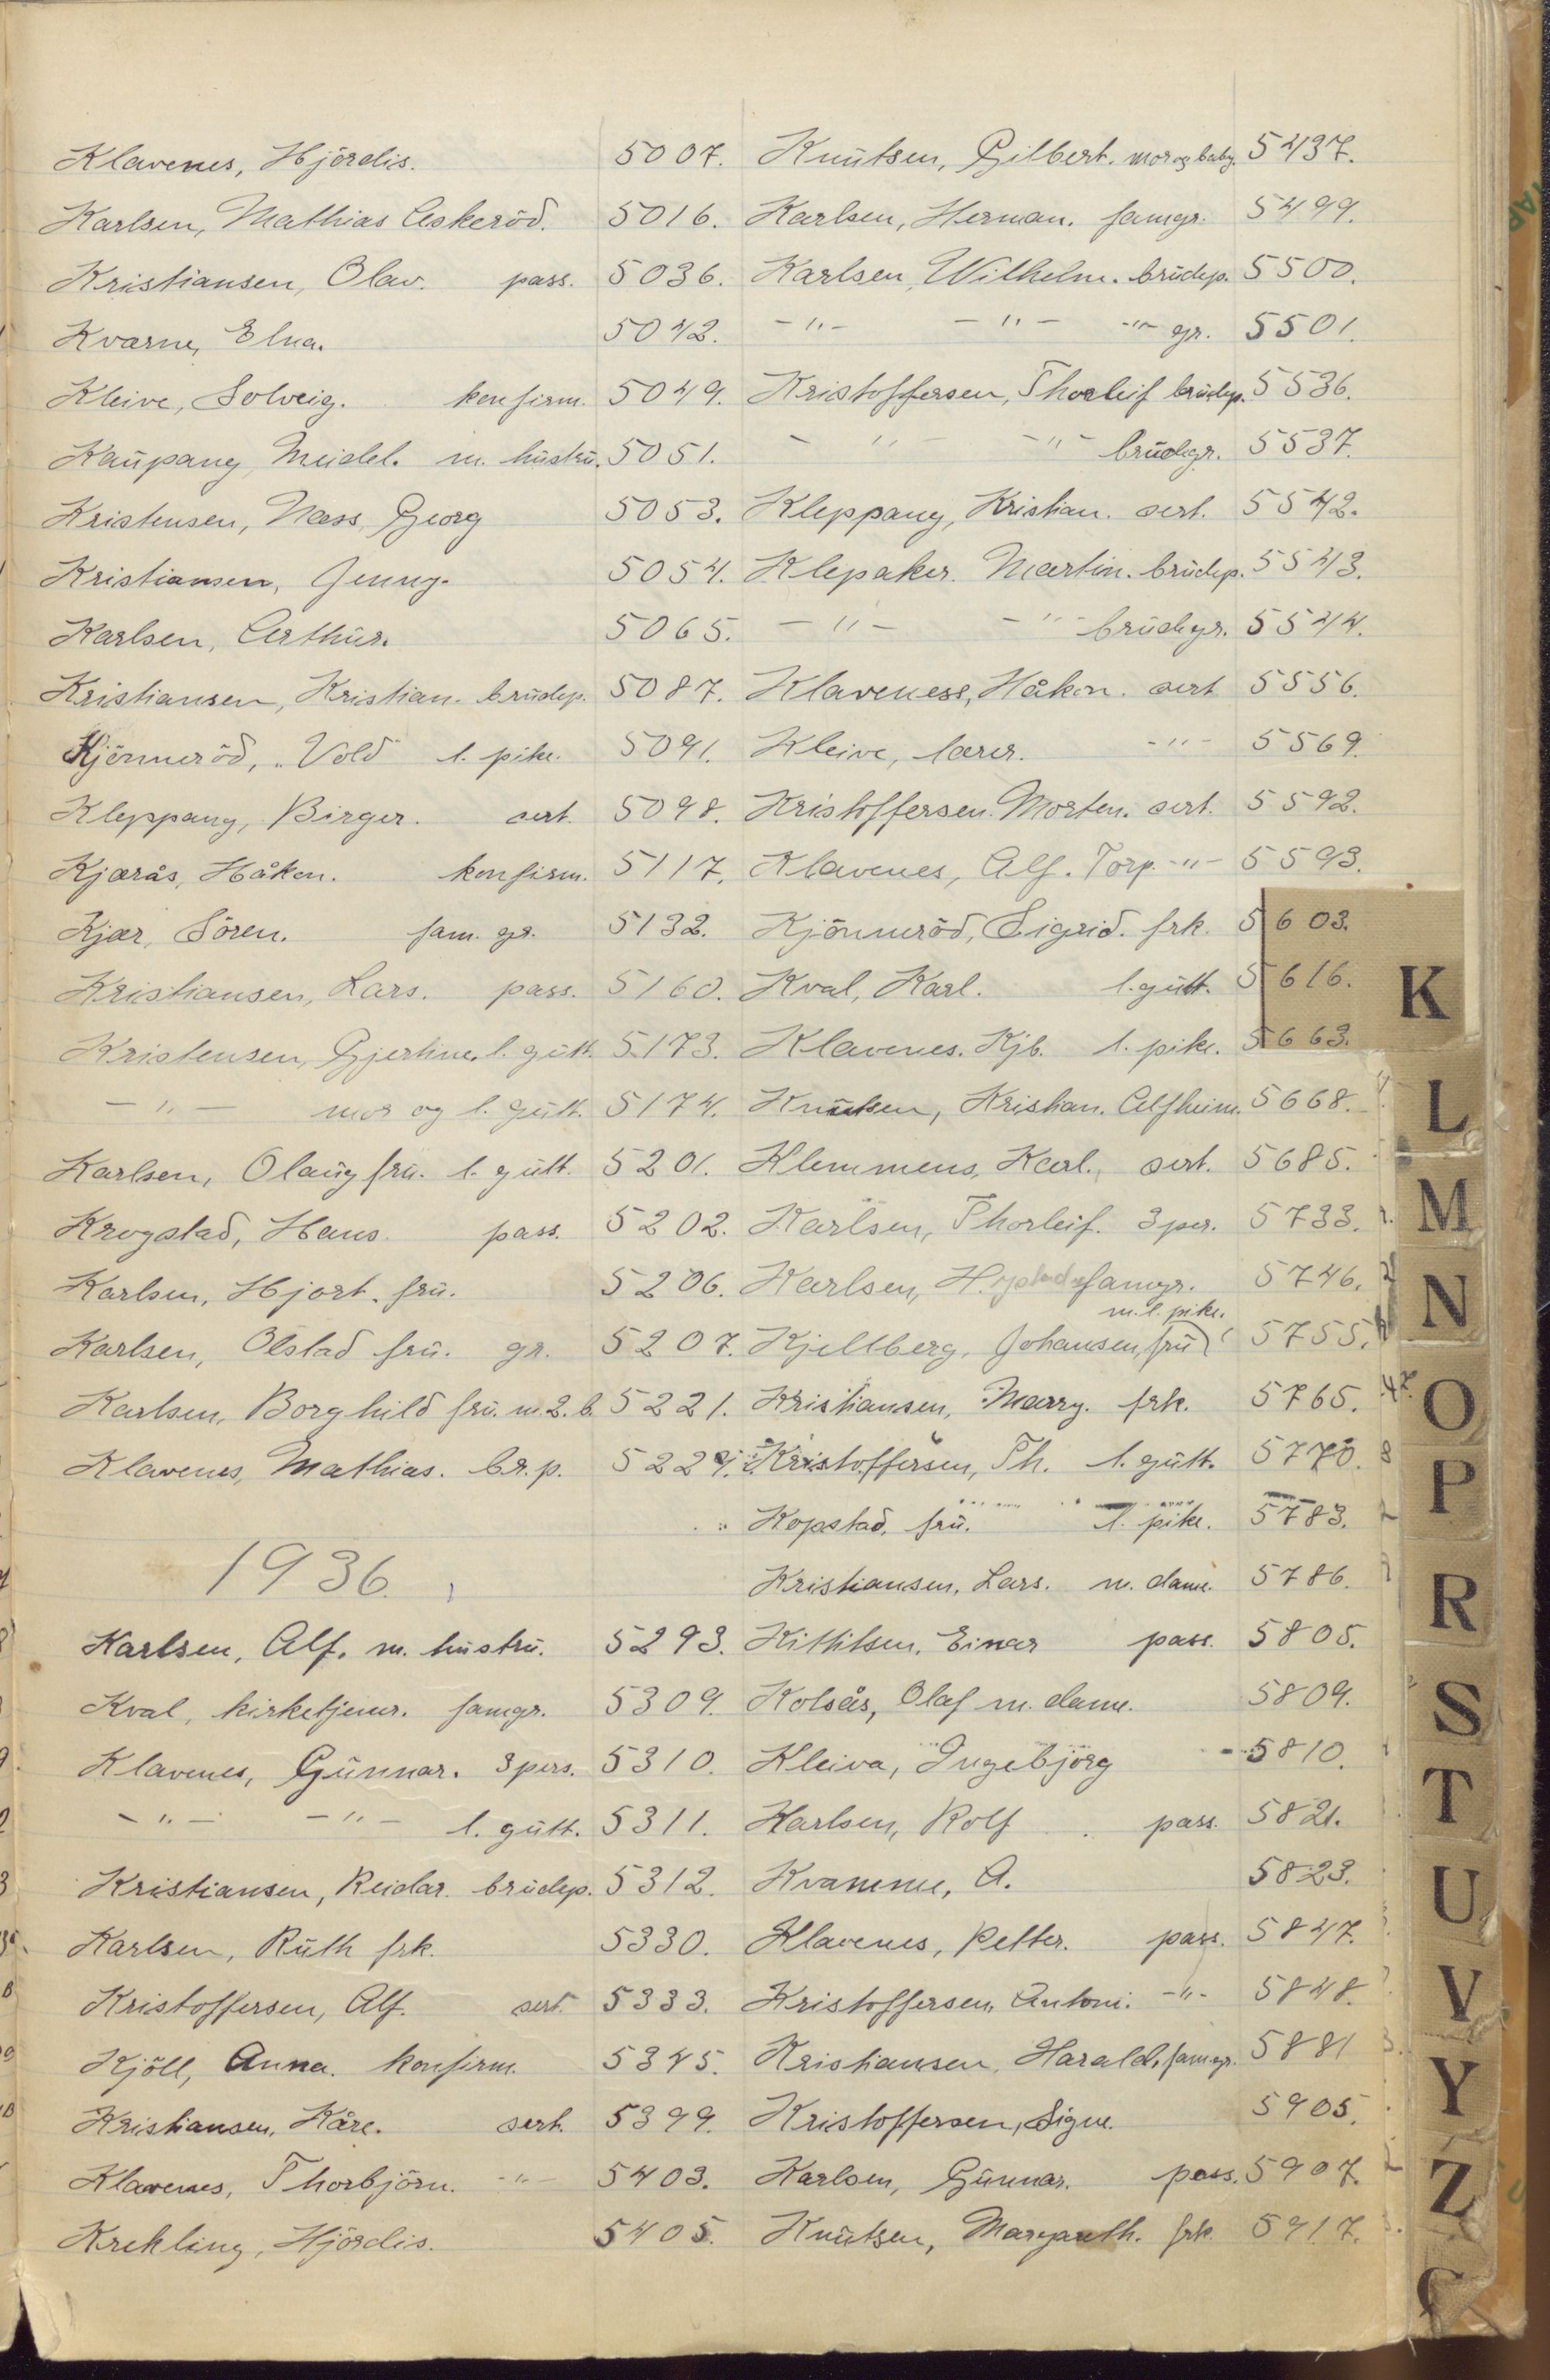 Klavenes, Hjördis. 5007.
Karlsen, Mathias Askeröd. 5016.
Kristiansen, Olav. pass. 5036.
Kvarne, Elna. 5042.
Kleive, Solveig. konfirm. 5049.
Kaupang, Meidel. m. hustru. 5051.
Kristensen, Næss, Georg 5053.
Kristiansen, Jenny. 5054.
Karlsen, Arthur. 5065.
Kristiansen, Kristian. brudep. 5087.
Kjönneröd, Vold l. pike. 5091.
Kleppang, Birger. sert. 5098.
Kjærås, Håkon. konfirm. 5117.
Kjær, Sören. fam. gr. 5132.
Kristiansen, Lars. pass. 5160.
Kristensen, Gjertine. l. gutt. 5173.
-"- mor og l. gutt. 5174.
Karlsen, Olaug fru. l. gutt. 5201.
Krogstad, Hans. pass. 5202.
Karlsen, Hjort. fru. 5206.
Karlsen, Olstad fru. gr. 5207.
Karlsen, Borghild fru. m. 2. b. 5221.
Klavenes, Mathias. br. p. 5229.
1936.
Karlsen, Alf. m. hustru. 5293.
Kval, kirketjener. famgr. 5309.
Klavenes, Gunnar. 3 pers. 5310.
-"- -"- l. gutt. 5311.
Kristiansen, Reidar. brudep. 5312.
Karlsen, Ruth frk. 5330.
Kristoffersen, Alf. sert. 5333.
Kjöll, Anna. konfirm. 5345.
Kristiansen, Kåre. sert. 5399.
Klavenes, Thorbjörn. -"- 5403.
Krekling, Hjördis. 5405.
Knutsen, Gilbert. mor og baby. 5437.
Karlsen, Herman. famgr. 5499.
Karlsen, Wilhelm. brudep. 5500.
-"- -"- -"- gr. 5501.
Kristoffersen, Thorleif brudep. 5536.
-"- -"- brudegr. 5537.
Kleppang, Kristian. sert. 5542.
Klepaker. Martin. brudep. 5543.
-"- -"- brudegr. 5544.
Klaveness, Håkon. sert 5556.
Kleive, lærer. -"- 5569.
Kristoffersen. Morten. sert. 5592.
Klavenes, Alf. Torp. -"- 5593.
Kjönneröd, Sigrid. frk. 5603.
Kval, Karl. l. gutt. 5616.
Klavenes. Kjb. l. pike. 5663.
Knutsen, Kristian. Alfheim. 5668.
Klemmens, Karl. sert. 5685.
Karlsen, Thorleif. 3 per. 5733.
Karlsen, famgr. 5746.
m. l. pike.
Kjellberg, Johansen, fru 5755.
Kristiansen, Marry. frk. 5765.
Kristoffersen, Th. l. gutt. 5770.
Kopstad, fru. l. pike. 5783.
Kristiansen, Lars. m. dame. 5786.
Kittilsen, Einar pass. 5805.
Kolsås, Olaf m. dame. 5809.
Kleiva, Ingebjörg 5810.
Karlsen, Rolf pass. 5821.
Kvamme, A. 5823.
Klavenes, Petter. pass. 5847.
Kristoffersen, Antoni. -"- 5848.
Kristiansen, Harald, famgr. 5881
Kristoffersen, Signe. 5905.
Karlsen, Gunnar. pass. 5907.
Knutsen, Margareth. frk. 5917.
K
L
M
N
O
P
R
S
T
U
V
Y
Z